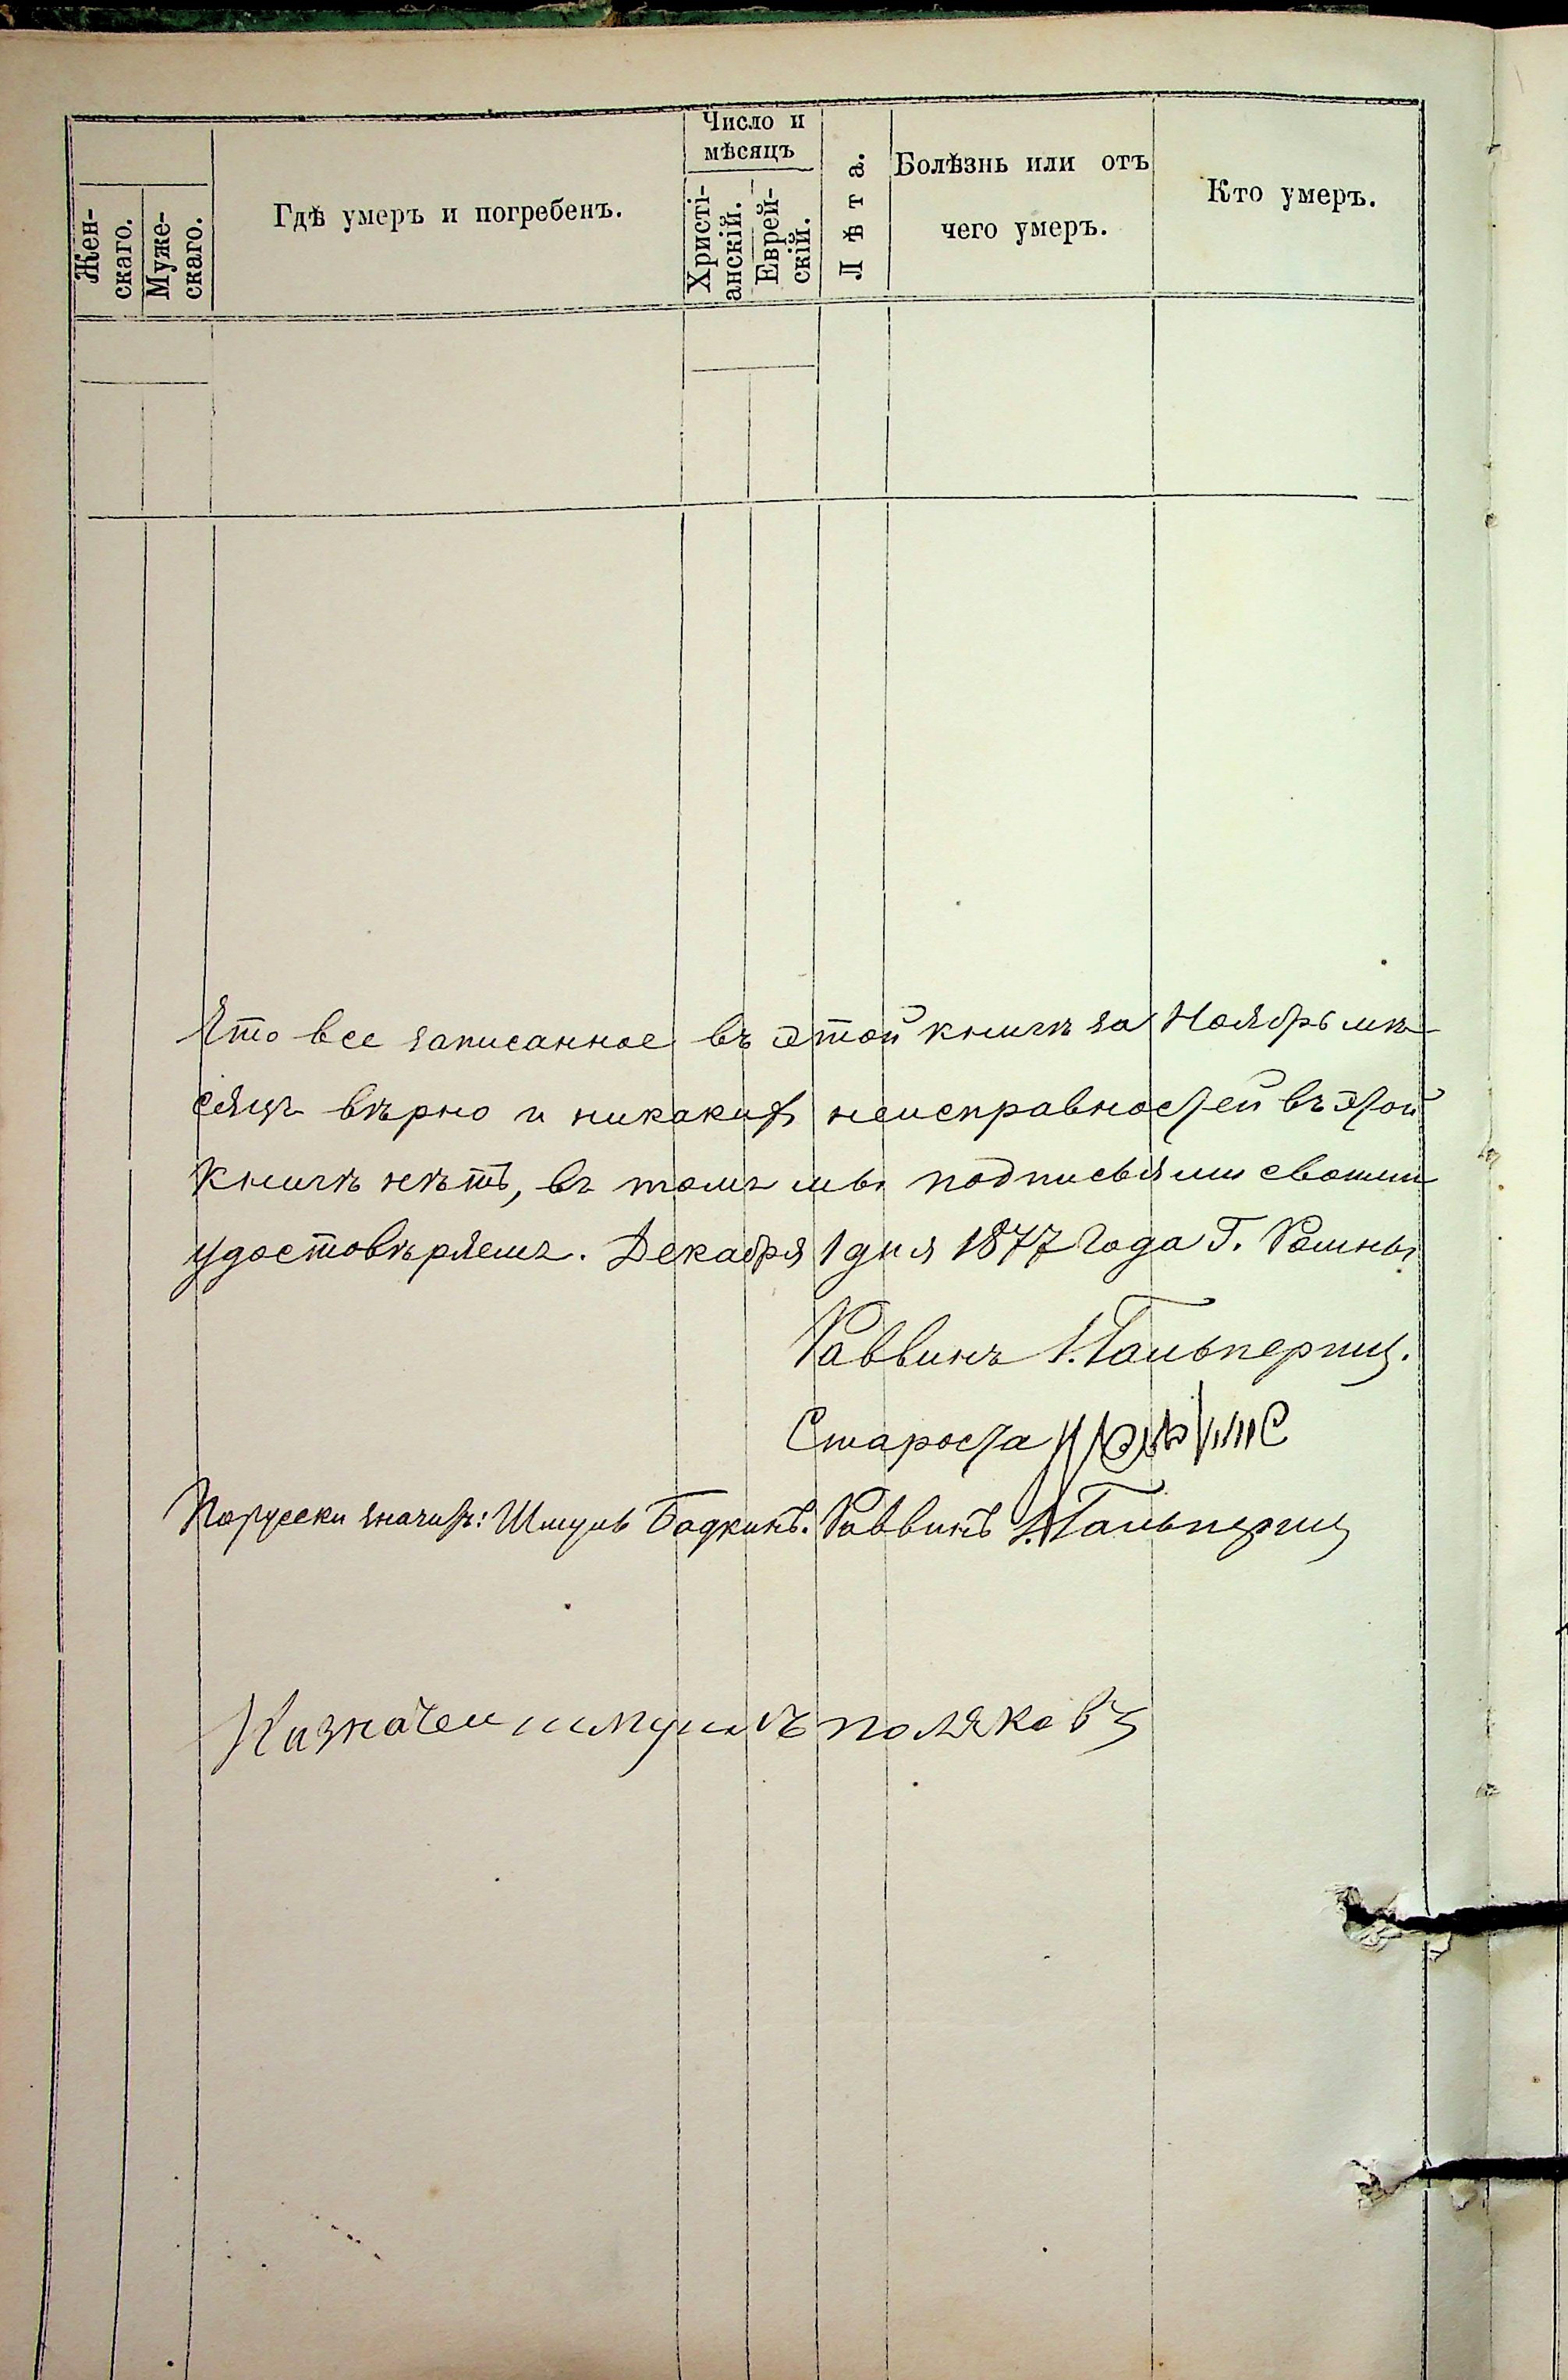 Жен-
скаго.
Муже-
скаго.
Гдѣ умеръ и погребенъ.
Число и
мѣсяцъ
Христі-
анскій.
Еврей-
скій.
Лѣта.
Болѣзнь или отъ
чего умеръ.
Кто умеръ.
Что все записанное въ этой книгѣ за Ноябрь мѣ-
сяцъ вѣрно и никакихъ неисправностей въ этой
книгѣ нѣтъ, въ томъ мы подписями своими
удостовѣряемъ. Декабря 1 дня 1877 Года Г. Ромны
Раввинъ І. Гальперинъ.
Староста
Порусски значитъ: Шмуль Бодкинъ. Раввинъ І. Гальперинъ
Казначеи шмуилъ поляковъ